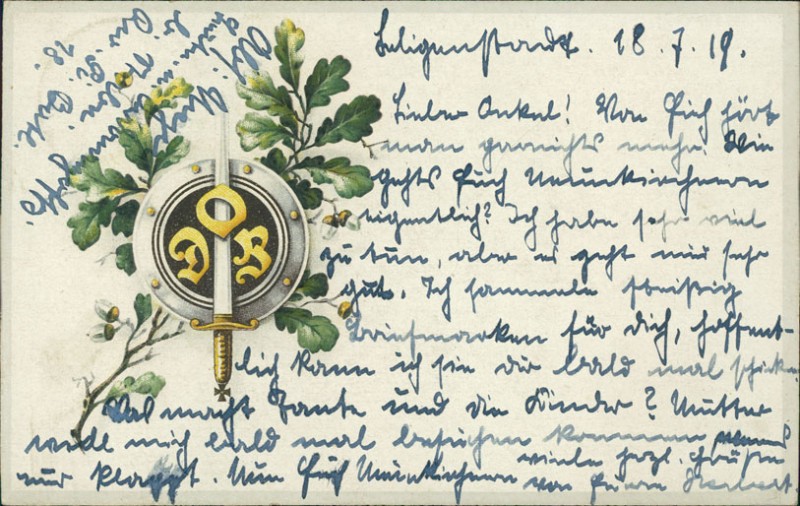 Seligenstadt. 18.7.19.
Lieber Onkel! Von Euch hört
man garnichts mehr. Wie
gehts Euch Neunkirchenern
eigentlich? Ich habe sehr viel
zu tun, aber es geht mir sehr
gut. Ich sammele fleißig
Briefmarken für Dich, hoffent-
lich kann ich sie Dir bald mal schicken
Was macht Tante und die Kinder? Mutter
will mich bald mal besuchen kommen wenns
nur klappt. Nun Euch Neunkirchenern viele herzl. Grüße
von Eurem
D O B